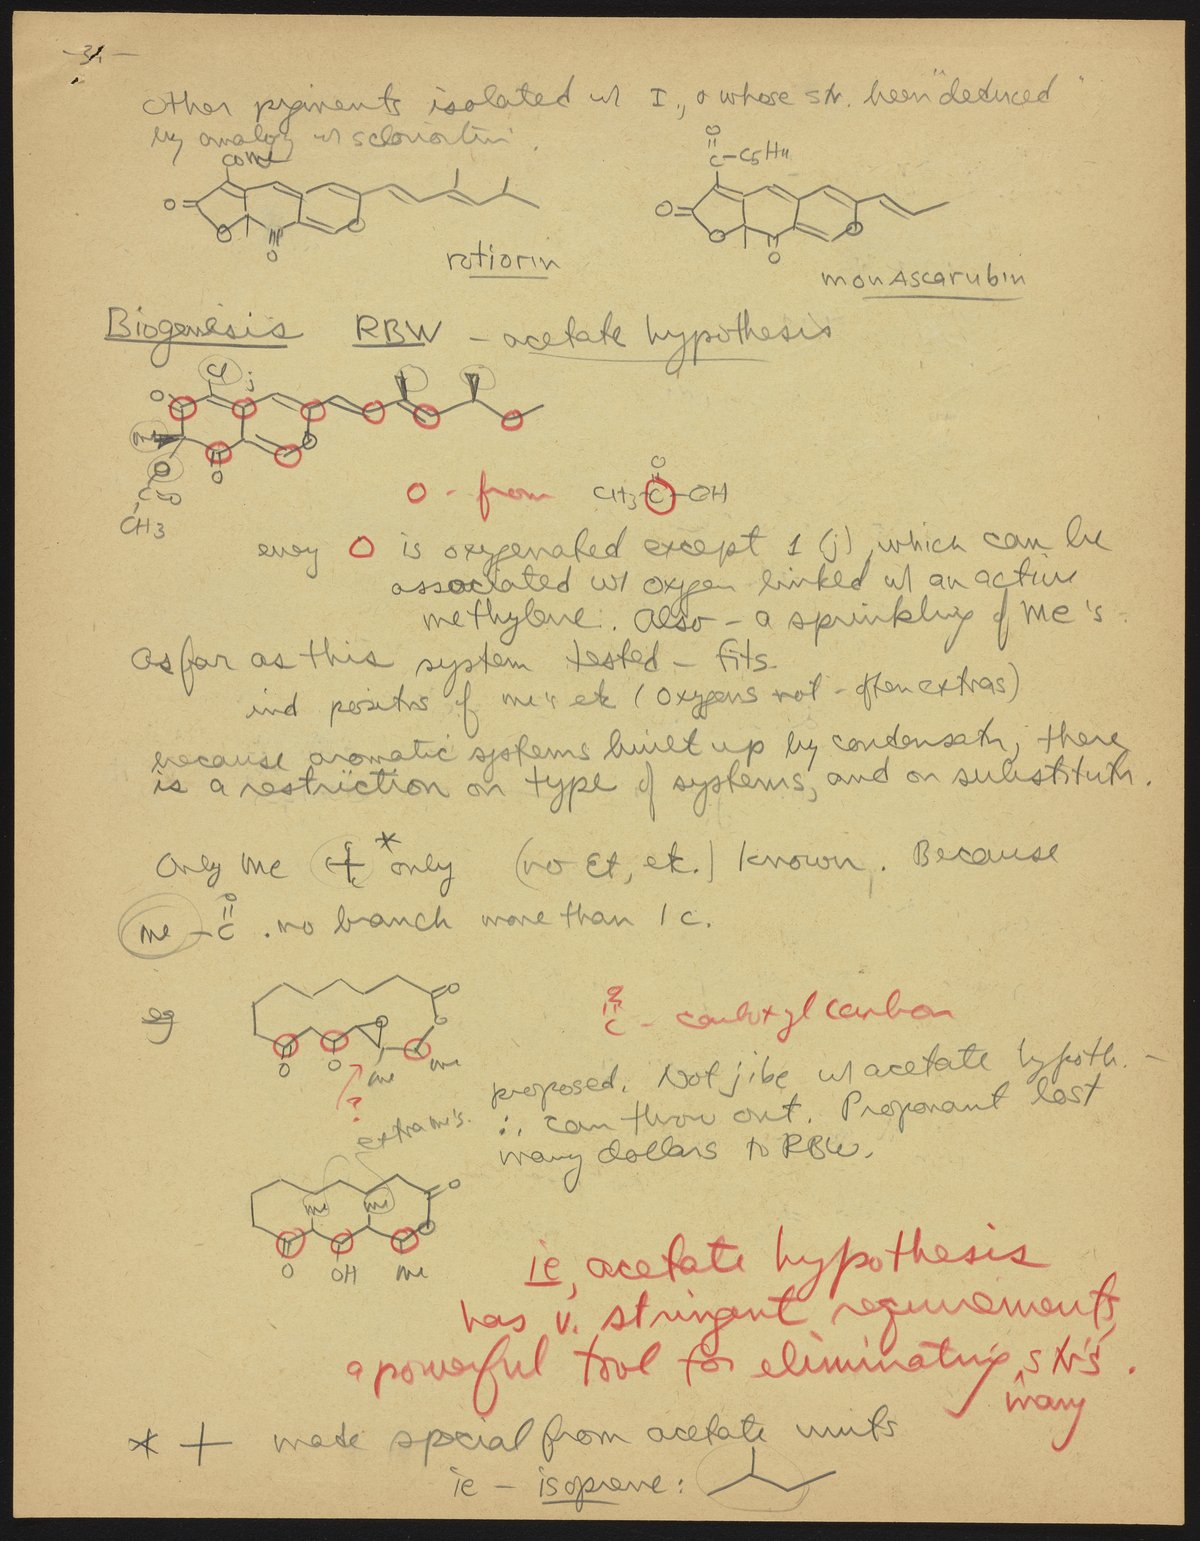 -31-
other pigments isolated w/ I, & whose str. been "deduced"
by analogy w/ sclerotiorin.
COMe
O
O
O
O
rotiorin
O
C-C5H11
O
O
O
O
monascarubin
Biogenesis RBW - acetate hypothesis
Cl
j
O
Me
O
O
O
C=O
CH3
O - from CH3-C-OH
O
every O is oxygenated except 1 (j) which can be
associated w/ oxygen linked w/ an active
methylene. Also - a sprinkling of Me's.
As far as this system tested - fits
ind positns of me's etc (oxygens not - often extras)
because aromatic systems built up by condensatn, there
is a restriction on type of systems, and on substitutn.
Only Me * only (no Et, etc.) known. Because
O
me - C . no branch more than 1 c.
eg
O
O
O
O
O
me
me
?
extra me's.
O
C - carboxyl carbon
proposed. Not jibe w/ acetate hypoth. -
∴ can throw out. Proponant lost
many dollars to RBW.
me
me
O
O
O
OH
me
ie, acetate hypothesis
has v. stringent requirements,
a powerful tool for eliminating str's.
many
* + made special from acetate units
ie - isoprene: